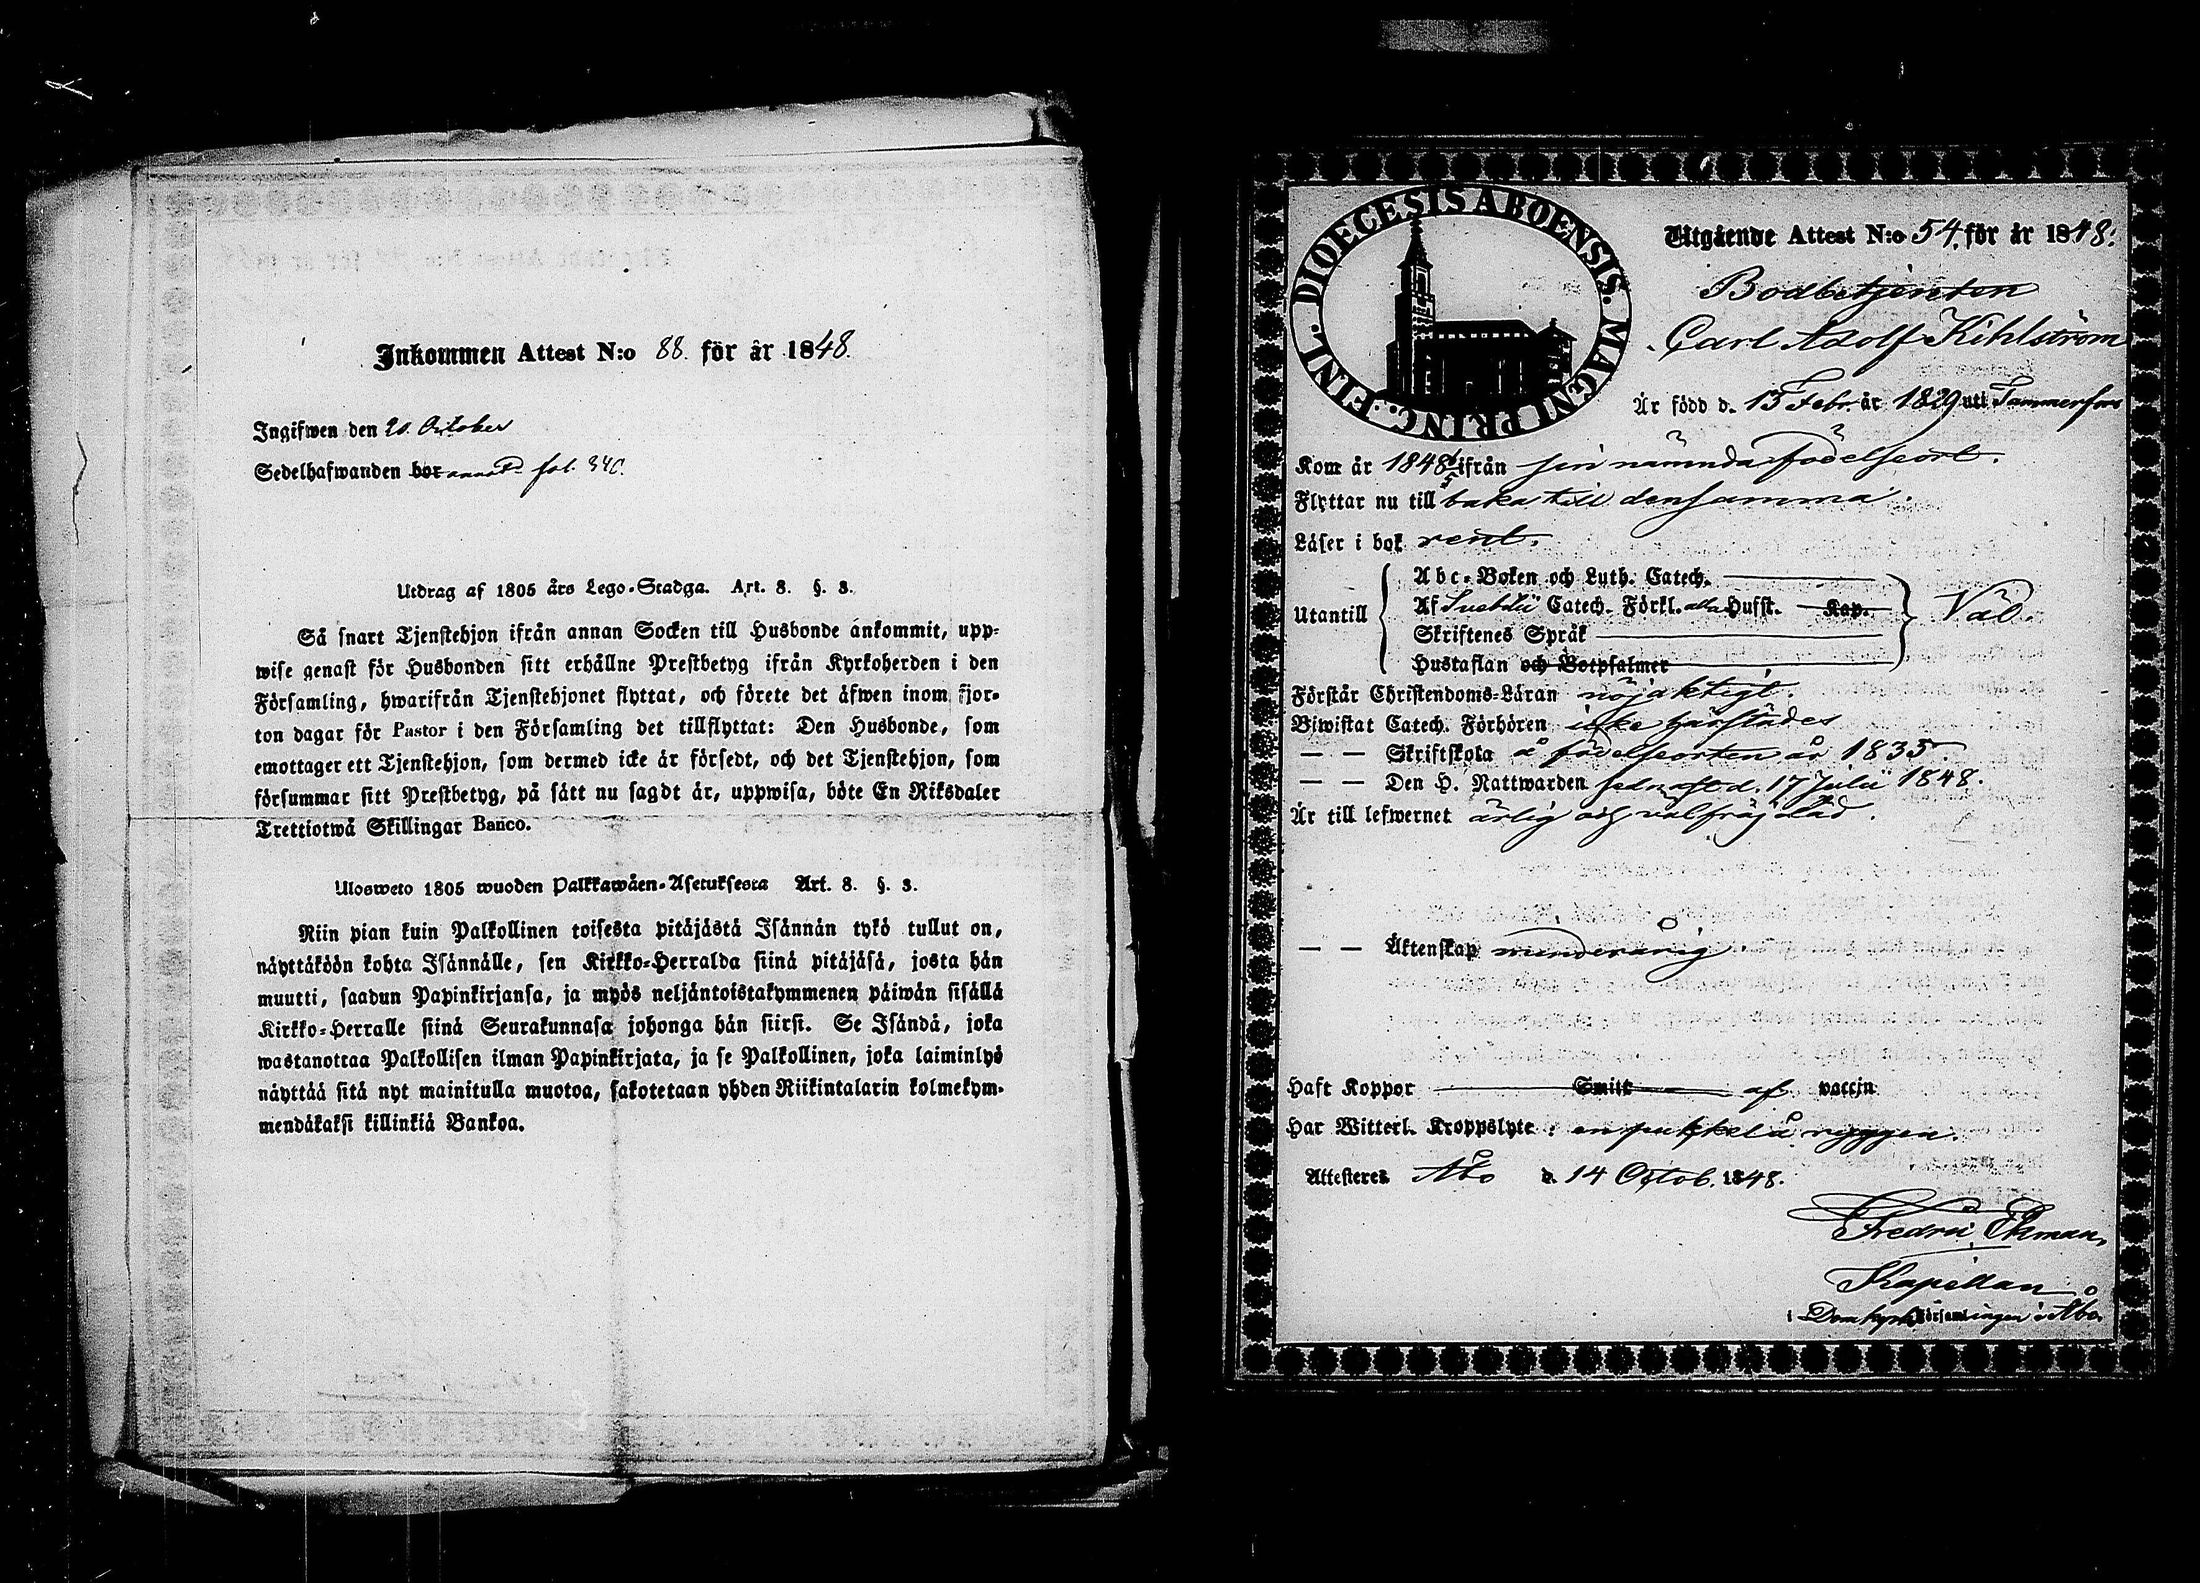 Inkommen Attest N:o 88. för år 1848.
Ingifwen den 20. October
Sedelhafwanden bor annot. fol. 340.
Utdrag af 1805 års Lego-Stadga. Art. 8. §. 3.
Så snart Tjenstehjon ifrån annan Socken till Husbonde ankommit, upp-
wise genast för Husbonden sitt erhållne Prestbetyg ifrån Kyrkoherden i den
Församling, hwarifrån Tjenstehjonet flyttat, och förete det äfwen inom fjor-
ton dagar för Pastor i den Församling det tillflyttat: Den Husbonde, som
emottager ett Tjenstehjon, som dermed icke är försedt, och det Tjenstehjon, som
försummar sitt Prestbetyg, på sätt nu sagdt är, uppwisa, böte En Riksdaler
Trettiotwå Skillingar Banco.
Ulosweto 1805 wuoden Palkkawäen-Asetuksesta Art. 8. §. 3.
Niin pian kuin Palkollinen toisesta pitäjästä Isännän tykö tullut on,
näyttäköön kohta Isännälle, sen Kirkko-Herralda siinä pitäjäsä, josta hän
muutti, saadun Papinkirjansa, ja myös neljäntoistakymmenen päiwän sisällä
Kirkko-Herralle siinä Seurakunnasa johonga hän siirsi. Se Isändä, joka
wastanottaa Palkollisen ilman Papinkirjata, ja se Palkollinen, joka laiminlyö
näyttää sitä nyt mainitulla muotoa, sakotetaan yhden Riikintalarin kolmekym-
mendäkaksi killinkiä Bankoa.
DIOECESIS ABOENSIS. MAGNI PRINC: FINL.
Utgående Attest N:o 54. för år 1848.
Bodbetjenten
Carl Adolf Kihlström
Är född d. 13 Febr. år 1829 uti Tammerfors
Kom år 1848 ifrån sin nämnda födelseort.
Flyttar nu till baka till densamma.
Läser i bok rent.
Utantill
Abc-Boken och Luth. Catech.
Af Svebilii Catech. Förkl. alla Hufst. Kap.
Skriftenes Språk
Hustaflan och Botpsalmer
Väl.
Förstår Christendoms-Läran nöjaktigt.
Biwistat Catech. Förhören icke härstädes
— — Skriftskola å födelseorten år 1835.
— — Den H. Nattwarden sednast d. 17 Julii 1848.
Är till lefwernet ärlig och välfräjdad.
— — Äktenskap minderårig.
Haft Koppor Smitt af vaccin
Har Witterl. Kroppslyte: en puckel å ryggen.
Attesteres Åbo d. 14 Octob. 1848.
Fredric Ekman,
Kapellan
i Domkyrko församlingen i Åbo.